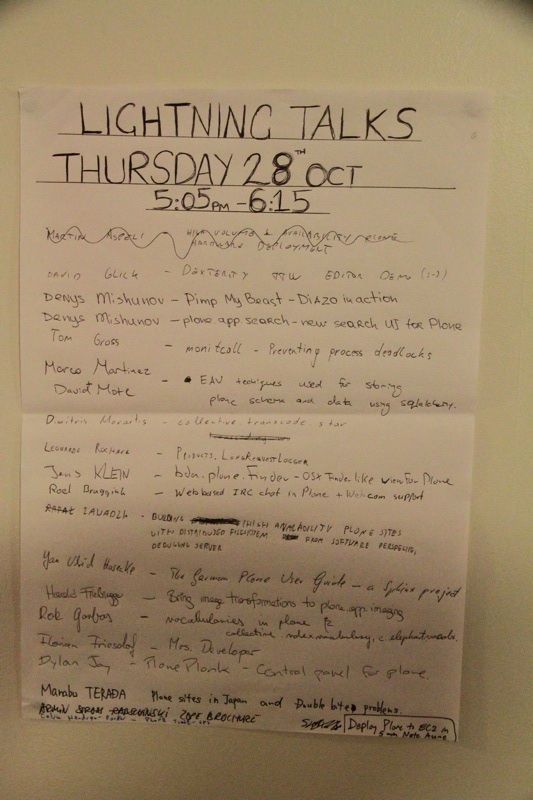 LIGHTNING TALKS
THURSDAY 28TH OCT
5:05PM - 6:15
MARTIN ASPELI - HIGH VOLUME & AVAILABILITY PLONE
HARDWARE DEPLOYMENT
DAVID GLICK - DEXTERITY TTW EDITOR DEMO (:-)
Denys Mishunov - Pimp My Beast - Diazo in action
Denys Mishunov - plone.app.search - new search UI for Plone
Tom Gross - monitcall - Preventing process deadlocks
Marco Martinez
David Mote - EAV techiques used for storing
plone schema and data using sqlalchemy.
Dimitris Moraitis - collective.transcode.star
LEONARDO ROCHAEL - PRODUCTS.LONGREQUESTLOGGER
Jens KLEIN - bda.plone.finder - OSX Finder like view for Plone
Roel Bruggink - Web based IRC chat in Plone + Webcam support
- BUILDING HIGH AVAILABILITY PLONE SITES
WITH DISTRIBUTED FILESYSTEM FROM SOFTWARE PERSPECTIVE,
DEBUGING SERVER
Jan Ulrich Hasecke - The German Plone User Guide - a Sphinx project
Harald - Bring image transformations to plone.app.imaging
Rok Garbas - vocabularies in plone
collective.
Florian Friesdorf - Mrs. Developer
Dylan Jay - Plone Plonk - Control panel for plone.
Manabu TERADA Plone sites in Japan and Double bytes problems.
ZOPE BROCHURE
Deploy Plone to EC2 in
5 min Nate Aune